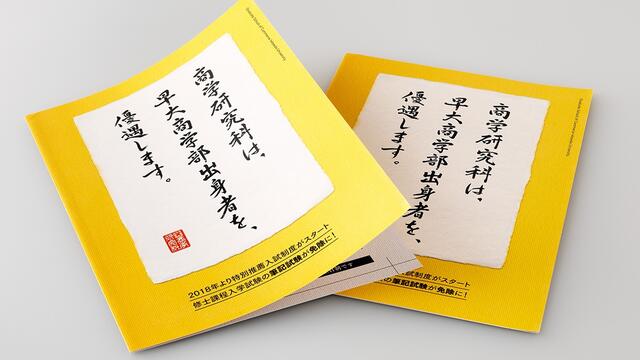 商学研究科は、
早大商学部出身者を、
優遇します。
2018年より特別推薦入試制度がスタート
修士課程入学試験の筆記試験が免除に!
商学研究科は、
早大商学部出身者を、
優遇します。
試制度がスタート
の筆記試験が免除に!